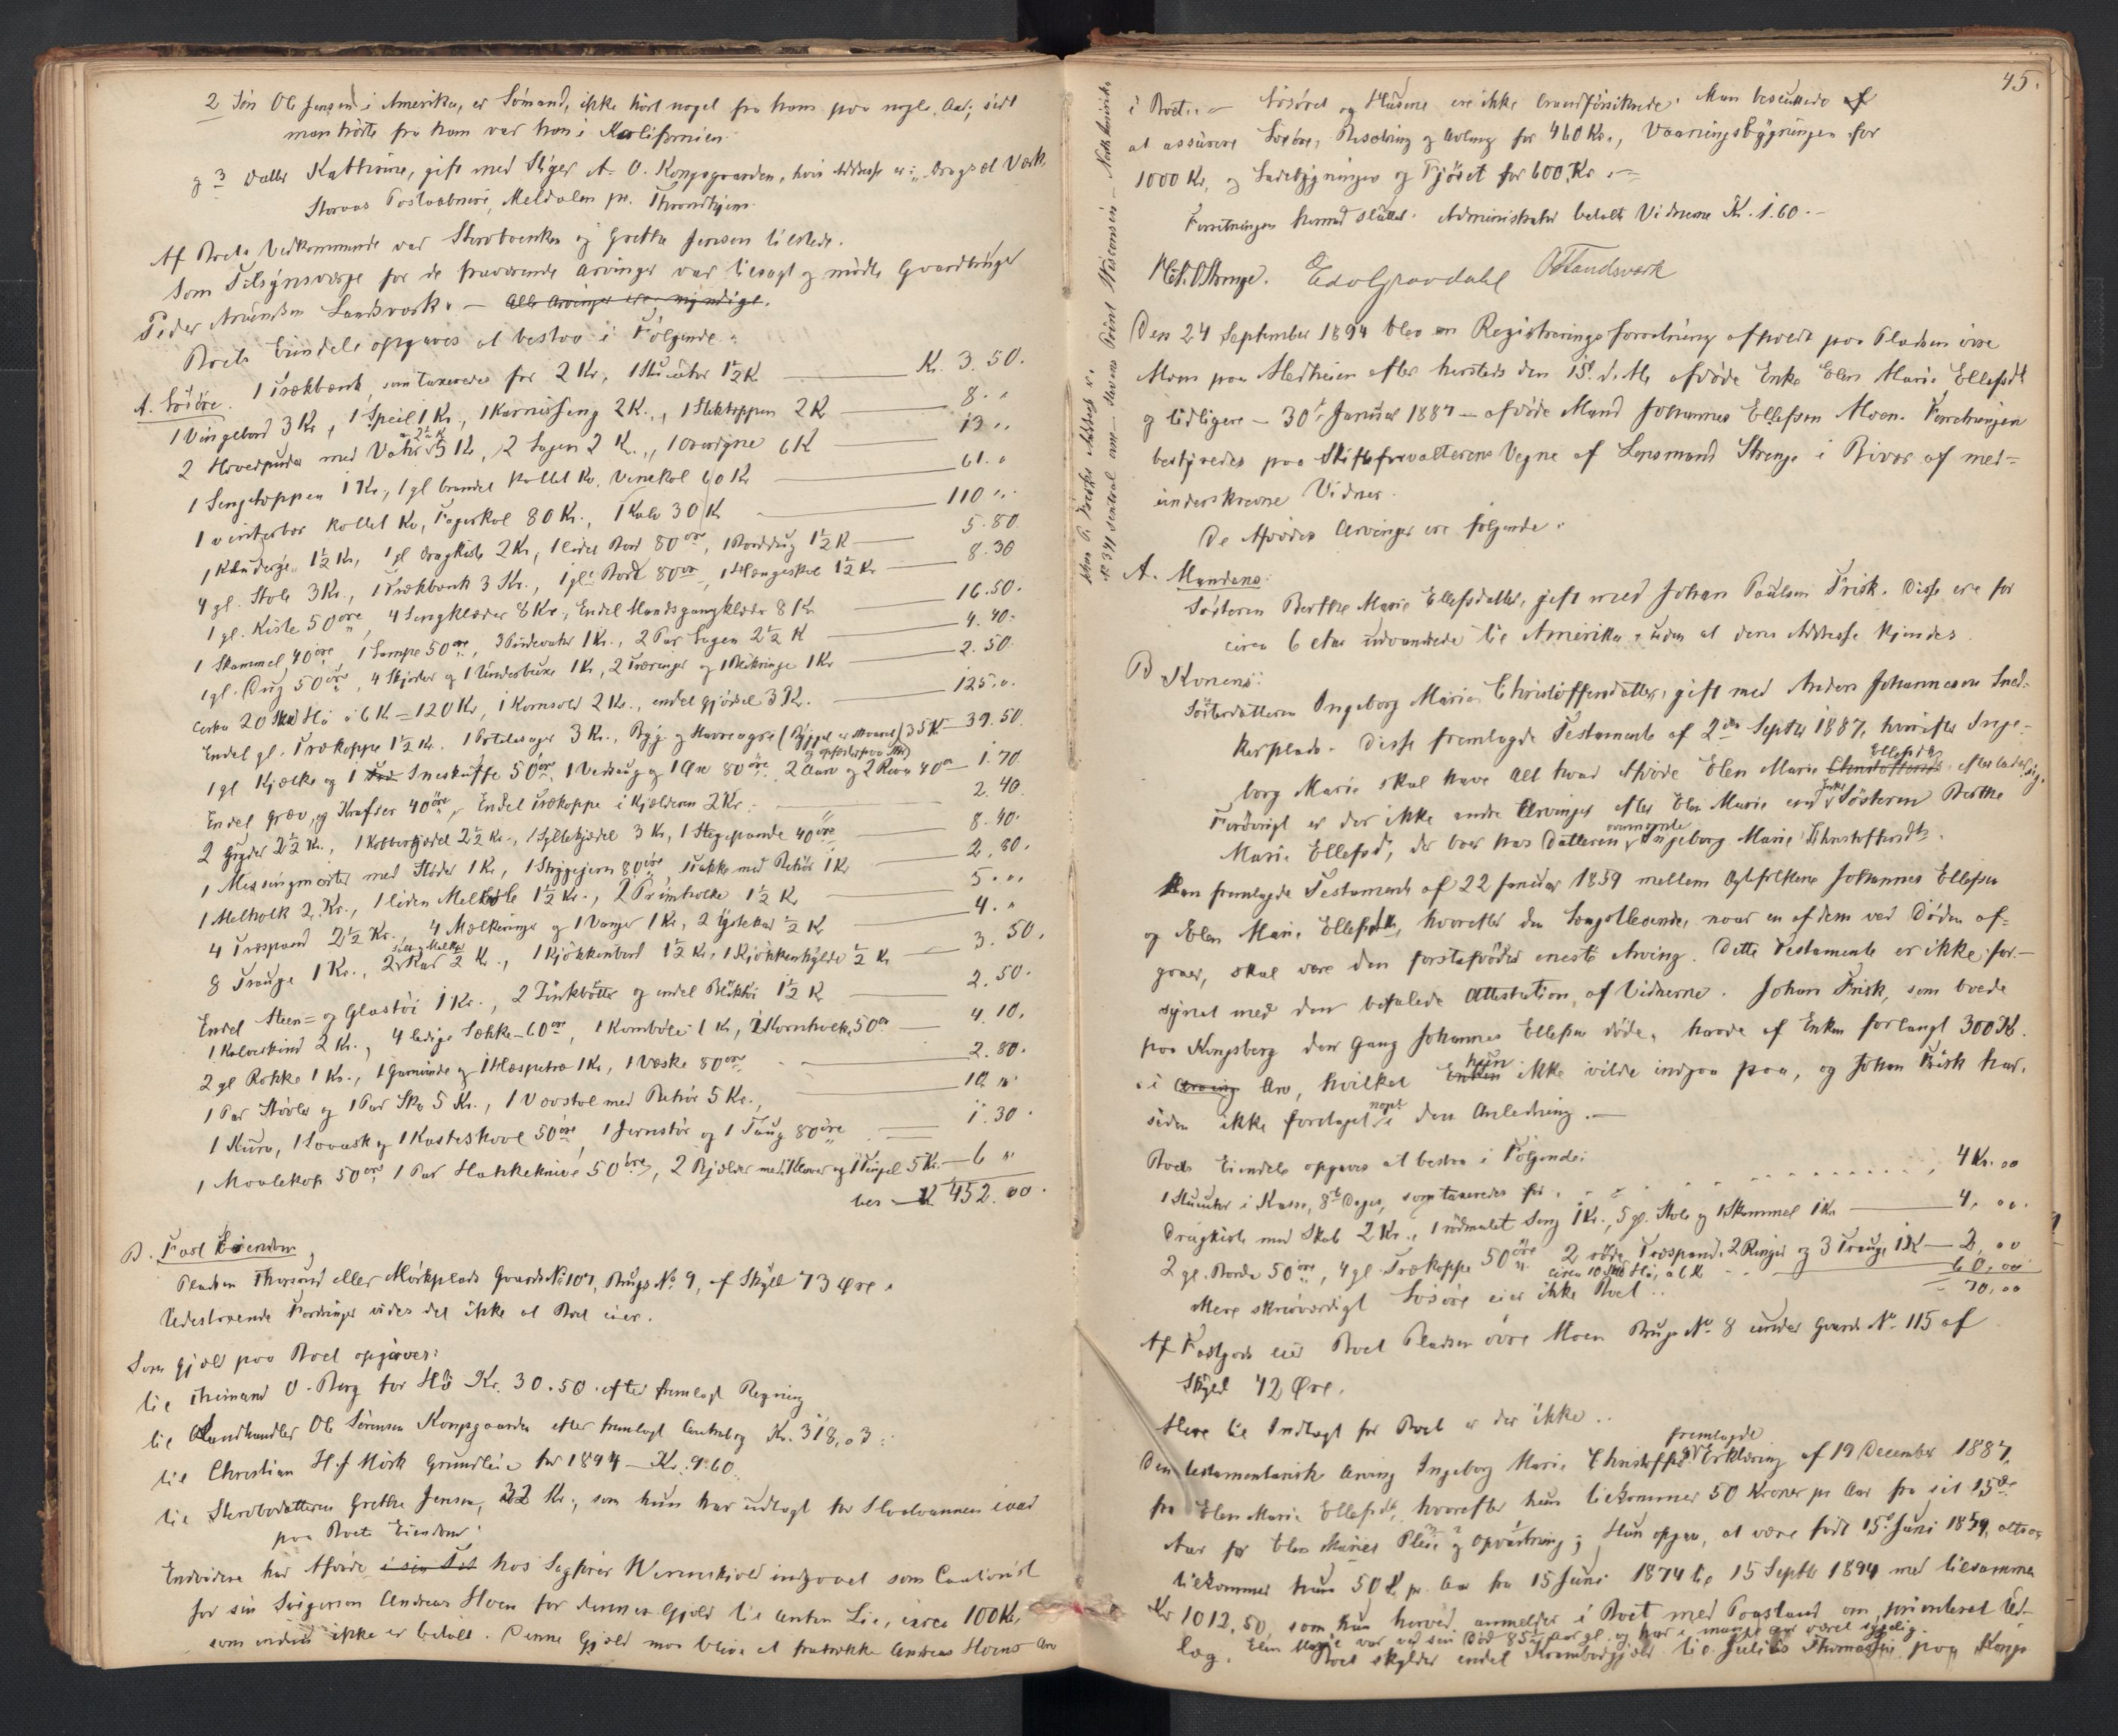 2 Søn Ole Jensen i Amerika, er Sømand, ikke hørt noget fra ham paa nogle Aar; sidst
man hørte fra ham var han i Kalifornien
og 3 Datter Kathrine, gift med Stiger A. O. Kongsgaarden, hvis Adresse er: Dragset Værk,
Storaas Postaabneri, Meldalen pr. Throndhjem.
Af Boets Vedkommende var Stervboenken og Grethe Jensen tilstede.
Som Tilsynsværge for de fraværende Arvinger var tilsagt og mødte Gaardbruger
Peder Amundsen Landsværk. — Alle Arvinger ere myndige.
Boets Eiendele opgaves at bestaa i Følgende:
A. Løsøre. 1 Trækbænk, som taxeredes for 2 Kr, 1 Stueuhr 1½ Kr Kr. 3.50.
1 Vingebord 3 Kr, 1 Speil 1 Kr., 1 Karnisseng 2 K., 1 Stektæppen 2 K 8. "
2 Hovedpuder med Vahr 5 Kr, 2 Lagen 2 K., 1 Overdyne 6 K 13 "
1 Sengetæppen 1 Kr, 1 gl brandet kollet Ko, Venekol 60 Kr 61. "
1 vinterbær kollet Ko, Fagerkol 80 Kr., 1 Kalv 30 K 110 "
1 Klædeskje 1½ Kr, 1 gl Dragkiste 2 Kr, 1 liden Bord 80 øre, 1 Borddug 1½ K 5.80
4 gl. Stole 3 Kr., 1 Trækbænk 3 Kr., 1 gl. Bord 80 øre, 1 Hængeskab 1½ Kr 8.30
1 gl. Kiste 50 øre, 4 Sengklæder 8 Kr., Endel Mandsgangklæder 8 Kr 16.50.
1 Skammel 40 øre, 1 Lampe 50 øre, 3 Pudevahr 1 Kr., 2 Par Lagen 2½ K 4.40.
1 gl. Dug 50 øre, 4 Skjorter og 1 Underbuxe 1 Kr, 2 Træringer og 1 Blikringe 1 Kr 2.50.
Cirka 20 Skd Hø á 6 K = 120 Kr, 1 Kornsold 2 Kr., endel Gjødsel 3 Kr. 125. "
Endel gl. Trækoppe 1½ Kr. 3 Kr., Byg og Havreagre (Bygget er skaaret) 35 K 39.50
og opsat paa Stør
1 gl Kjælke og 1 Sneskuffe 50 øre, 1 Vedsaug og 1 Øx 80 øre 2 Aarv og 2 River 40 ør 1.70
Endel Græv, og Krafser 40 øre, Endel Trækoppe i Kjælderen 2 Kr. 2.40
2 Gryder 2½ Kr., 1 Kobberkjedel 2½ Kr., 1 Syltekjedel 3 Kr, 1 Stegepande 40 øre 8.40.
1 Messingmorter med Støder 1 Kr, 1 Strygejern 80 øre, Rokke med Behør 1 Kr 2.80.
1 Melholk 2 Kr., 1 liden Melkiste 1½ Kr., 2 Primholke 1½ Kr 5. "
4 Træspand 2½ Kr., 4 Mælkeringe og 1 Vange 1 Kr, 2 Ystekar ½ Kr 4. "
8 Trauge 1 Kr., 2 Kar ½ Kr., 1 Kjøkkenbord 1½ Kr, 1 Kjøkkenhylde ½ Kr 3.50.
Endel Steen= og Glastøi 1 Kr., 2 Zinkbøtter og endel Bliktøi 1½ Kr 2.50.
1 Kalveskind 2 Kr., 4 ledige Sække 60 øre, 1 Kornbøle 1 Kr, 1 Kornholk 50 ør 4.10.
2 gl Rokke 1 Kr., 1 Garnvinde og 1 Hæspetræ 1 Kr, 1 Væske 80 øre 2.80.
1 Par Støvler og 1 Par Sko 5 Kr., 1 Vævstol med Behør 5 Kr., 10 "
1 Kurv, 1 Lovask og 1 Kasteskovl 50 øre, 1 Jernstør og 1 Taug 80 øre 1.30.
1 Maalekop 50 øre 1 Par Hakkeknive 50 øre, 2 Bjælder med Klaver og 5 Kr. 6 "
ber K 452.00.
B. Fast Eiendom
Pladsen Thorsrud eller Mørkplads Gaards No 107, Brugs No 9, af Skyld 73 Øre.
Udestaaende Fordringer vides det ikke at Boet eier.
Som Gjæld paa Boet opgives:
til Theimand O. Berg for Hø Kr. 30.50. efter fremlagt Regning
til Landhandler Ole Sørensen Kongsgaarden efter fremlagt Contrabog Kr. 318,03.
til Christian H. f Mørk Grundleie for 1894 — Kr. 9.60.
til Stervbodatteren Grethe Jensen, 32 Kr., som hun har udlagt for
paa Boets Eiendom.
Endvidere har Afdøde i sin Tid hos Sagfører Wrenskiold indgaaet som Cautionist
for sin Svigersøn Andreas Hoen for dennes Gjæld til Anton Lie, circa 100 Kr,
som endnu ikke er betalt. Denne Gjæld maa blive at fratrække Andreas Hoens Arv
45.
i Boet. — Løsøret og Husene ere ikke brandforsikrede. Man besluttede
at assurere Løsøre, Besætning og Avling for 460 Kr., Vaaningsbygningen for
1000 Kr, og Ladebygningen og Fjøset for 600 Kr. —
Forretningen hermed sluttet. Administrator betalte Vidnerne Kr. 1.60. —
Chr. Strenge. E Olgravdahl O Landsværk
Johan P. Frisks Addresse er,
No 341 Central Avne — Stevens Point Wisconsin — Nordamerika
Den 24 September 1894 blev en Registreringsforretning afholdt paa Pladsen øvre
Moen paa Medheien efter hersteds den 15. d. M. afdøde Enke Elen Marie Ellefsdt
og tidligere — 30te Januar 1887 — afdøde Mand Johannes Ellefsen Moen. Forretningen
bestyredes paa Skifteforvalterens Vegne af Lensmand Strenge i Bivær af med=
underskrevne Vidner.
De Afdødes Arvinger ere følgende:
A. Mandens:
Søsteren Berthe Marie Ellefsdatter, gift med Johan Paulsen Frisk. Disse ere for
circa 6 Aar udvandrede til Amerika, uden at deres Addresse kjendes.
B Konens:
Søsterdatteren Ingeborg Marie Christoffersdatter, gift med Anders Johannesen Sned-
kerplads. Disse fremlagde Testamente af 2den Septbr 1887, hvorefter Inge-
borg Marie skal have Alt hvad Afdøde Elen Marie Christoffersd Ellefsdtr efterlader sig.
Forøvrigt er der ikke andre Arvinger efter Elen Marie end Søsteren Berthe
Marie Ellefsd, der boer hos Datteren ovennævnte Ingeborg Marie Christoffersdtr.
Man fremlagde Testament af 22 Januar 1859 mellem Ægtefolkene Johannes Ellefsen
og Elen Marie Ellefsdtr, hvorefter den Længstlevende, naar en af dem ved Døden af=
gaaer, skal være den førstafdødes eneste Arving. Dette Testamente er ikke for-
synet med den befalede Attestation af Vidnerne. Johan Frisk, som boede
paa Kongsberg den Gang Johannes Ellefsen døde, havde af Enken forlangt 300 Kr.
i Arving Arv, hvilket Enken hun ikke vilde indgaa paa, og Johan Frisk har
siden ikke foretaget noget i den Anledning. —
Boets Eiendele opgaves at bestaa i Følgende:
1 Stueuhr i Kasse, 8te Dages, som taxeredes for 4 Kr. 00
Dragkiste med Skab 2 Kr., 1 rødmalet Seng 1 Kr., 5 gl. Stole og 1 Skammel 1 Kr 4, 00.
2 gl. Borde 50 øre, 4 gl. Trækoppe 50 øre 2 røde Træspande 2 Ringer og 3 Trauge 1 K 2,00
circa 10 Skd Hø, a 6 K 60,00
Mere skriveværdigt Løsøre eier ikke Boet.. 70,00
Af Fastgods eier Boet Pladsen øvre Moen Brugs No. 8 under Gaards No. 115 af
Skyld 42 Øre.
Mere til Indtægt for Boet er der ikke..
Den testamentariske Arving Ingeborg Marie Christoffersdt fremlagde Erklæring af 19 December 1887,
fra Elen Marie Ellefsdt, hvorefter hun tilkommer 50 Kroner pr Aar fra sit 15de
Aar for Elen Maries Pleie og Opvartning; Hun opgav, at være født 15. Juni 1859, altsaa
tilkommer hun 50 K pr. Aar fra 15 Juni 1874 til 15 Septbr 1894 med tilsammen
Kr 1012,50, som hun herved anmelder i Boet med Paastand om prioriteret Ud-
læg. Elen Marie var ved sin Død 85½ Aar gl. og har i mange Aar været sygelig.
Boet skylder endel Krambodgjæld til Julius Thomassen paa Kongs